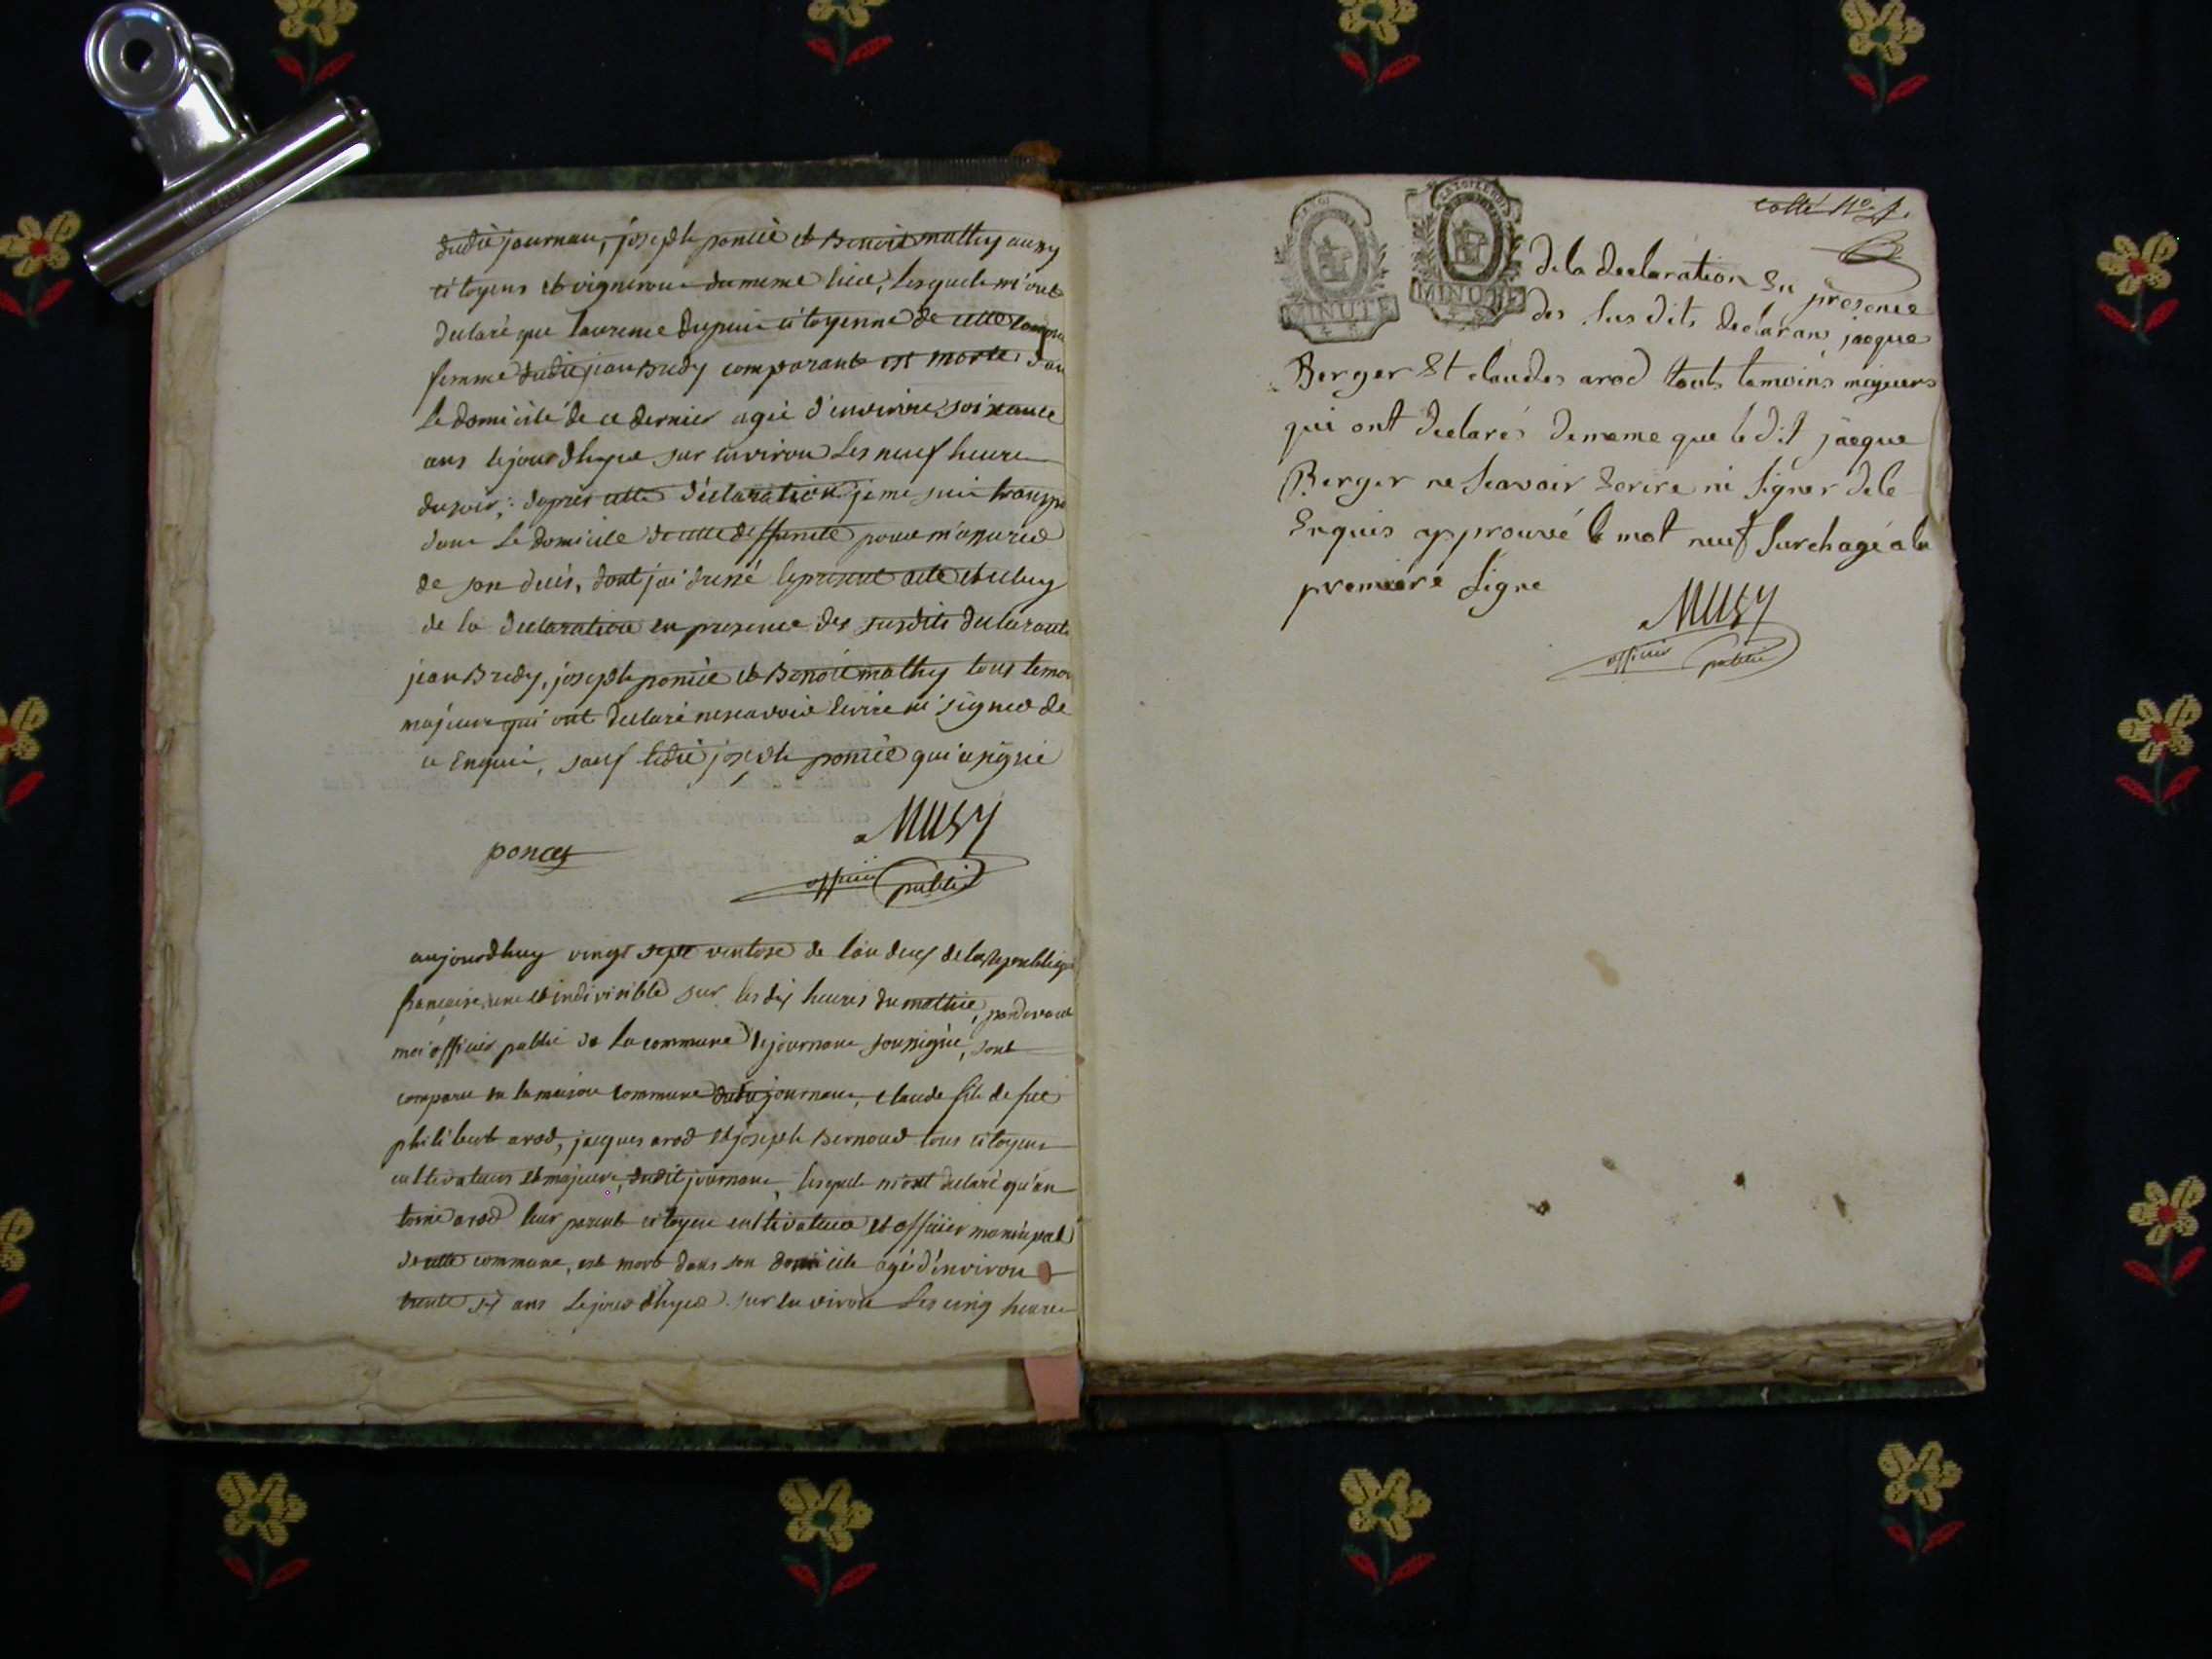 dudit journau, joseph poncié et Benoit mathy aussy
citoyens et vignerons du meme lieu, lesquels m'ont
declaré que laurence dupuis citoyenne de cette
femme dudit jean Bredy comparant est morte dans
le domicile de ce dernier agée d'environ soixante
ans le jour d'hyer sur environ les neuf heures
du soir, d'après cette déclaration je me suis transpo
dans le domicile de cette deffunte pour m'assurer
de son decès, dont j'ai dressé le present acte et
de la declaration en presence des susdits declarants
jean Bredy, joseph poncié et Benoit mathy tous temoi
majeurs qui ont declaré ne scavoir Ecrire ni signer de
ce Enquis, sauf ledit joseph poncié qui a signé
Musy
poncet
officier public
aujourdhuy vingt sept ventose de l'an deux de la Republique
francaise, une et indivisible sur les dix heures du matin, pardevant
moi officier public de la commune de journau soussigné, sont
comparu en la maison commune dudit journau, claude fils de feu
philibert arod, jacques arod et joseph Bernoud tous citoyens
cultivateurs et majeurs, dudit journau, lesquels m'ont declaré qu'an
toine arod leur parent citoyen cultivateur et officier municipal
de cette commune, est mort dans son domicile agé d'environ
trente six ans le jour d'hyer sur environ les cinq heures
cotté
MINUTE
MINUTE
de la declaration En presence
des sus dits declarans jacque
Berger Et claudes arod touts temoins majeurs
qui ont declarés de meme que le dit jacque
Berger ne scavoir Ecrire ni signer de ce
Enquis approuvé le mot neuf surchagé a la
première ligne
Musy
officier public